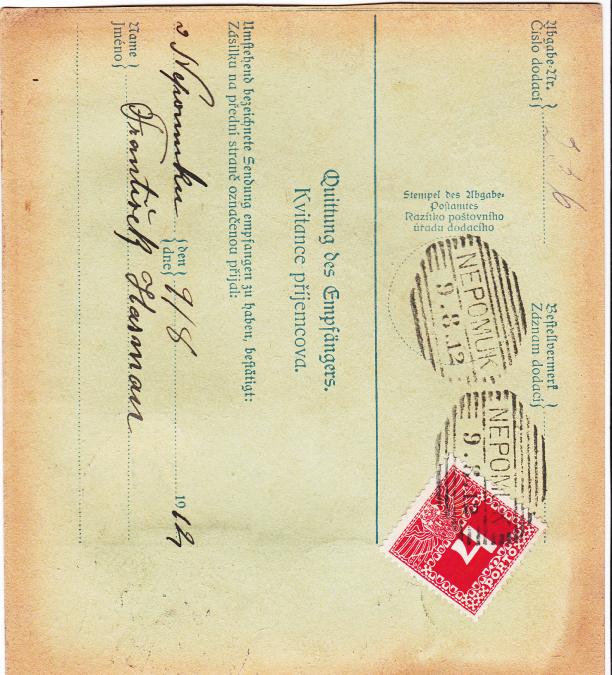 Abgabe-Nr.
Číslo dodací
Bestellvermerk
Záznam dodací
Stempel des Abgabe-
Postamtes
Razítko poštovního
úřadu dodacího
NEPOMUK
9.8.12
NEPOMUK
9.8.12
4
PORTO
Quittung des Empfängers.
Kvitance příjemcova.
Umstehend bezeichnete Sendung empfangen zu haben, bestätigt:
Zásilku na přední straně označenou přijal:
v Nepomuku den 9/8 1912
dne
Name František Hasman
Jméno